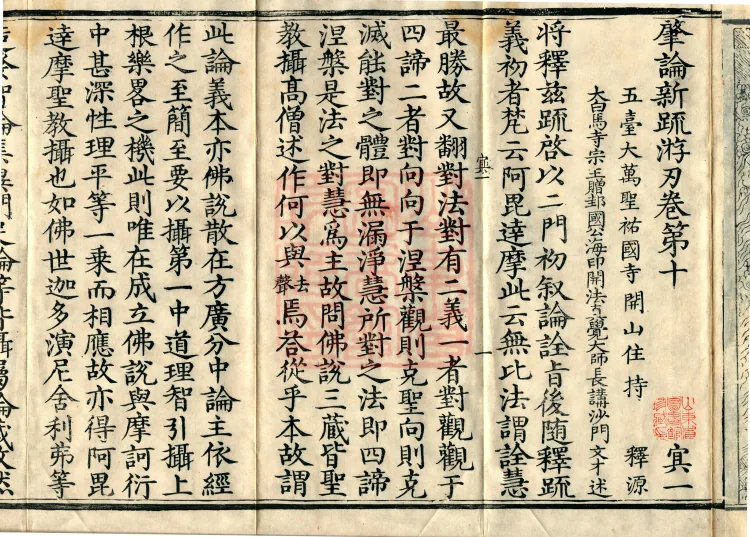 肇論新疏游刃卷第十 㝠一
五臺大萬聖祐國寺開山住持 釋源
大白馬寺宗主贈邽國公海印開法大師長講沙門 文才 述
將釋茲疏啓以二門初叙論詮旨後隨釋疏
義初者梵云阿毘達摩此云無比法謂詮慧
最勝故又翻對法對有二義一者對觀觀于
四諦二者對向向于涅槃觀則克聖向則克
滅能對之體即無漏淨慧所對之法即四諦
涅槃是法之對慧爲主故問佛說三藏皆聖
教攝高僧述作何以與去聲焉荅從乎本故謂
此論義本亦佛說散在方廣分中論主依經
作之至簡至要以攝第一中道理智引攝上
根樂畧之機此則唯在成立佛說與摩訶衍
中甚深性理平等一乗而相應故亦得阿毘
達摩聖教攝也如佛世迦多演尼舍利弗等
㝠一
一